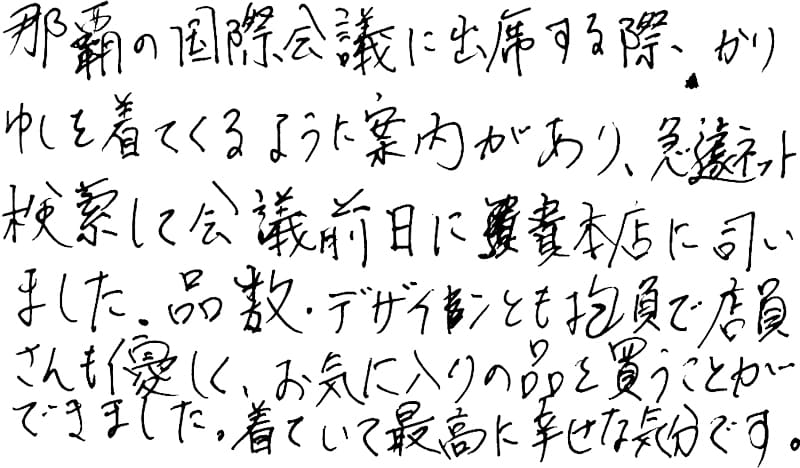 那覇の国際会議に出席する際、かり
ゆしを着てくるように案内があり、急遽ネット
検索して会議前日に貴本店に伺い
ました。品数・デザインとも抱負で店員
さんも優しく、お気に入りの品を買うことが
できました。着ていて最高に幸せな気分です。